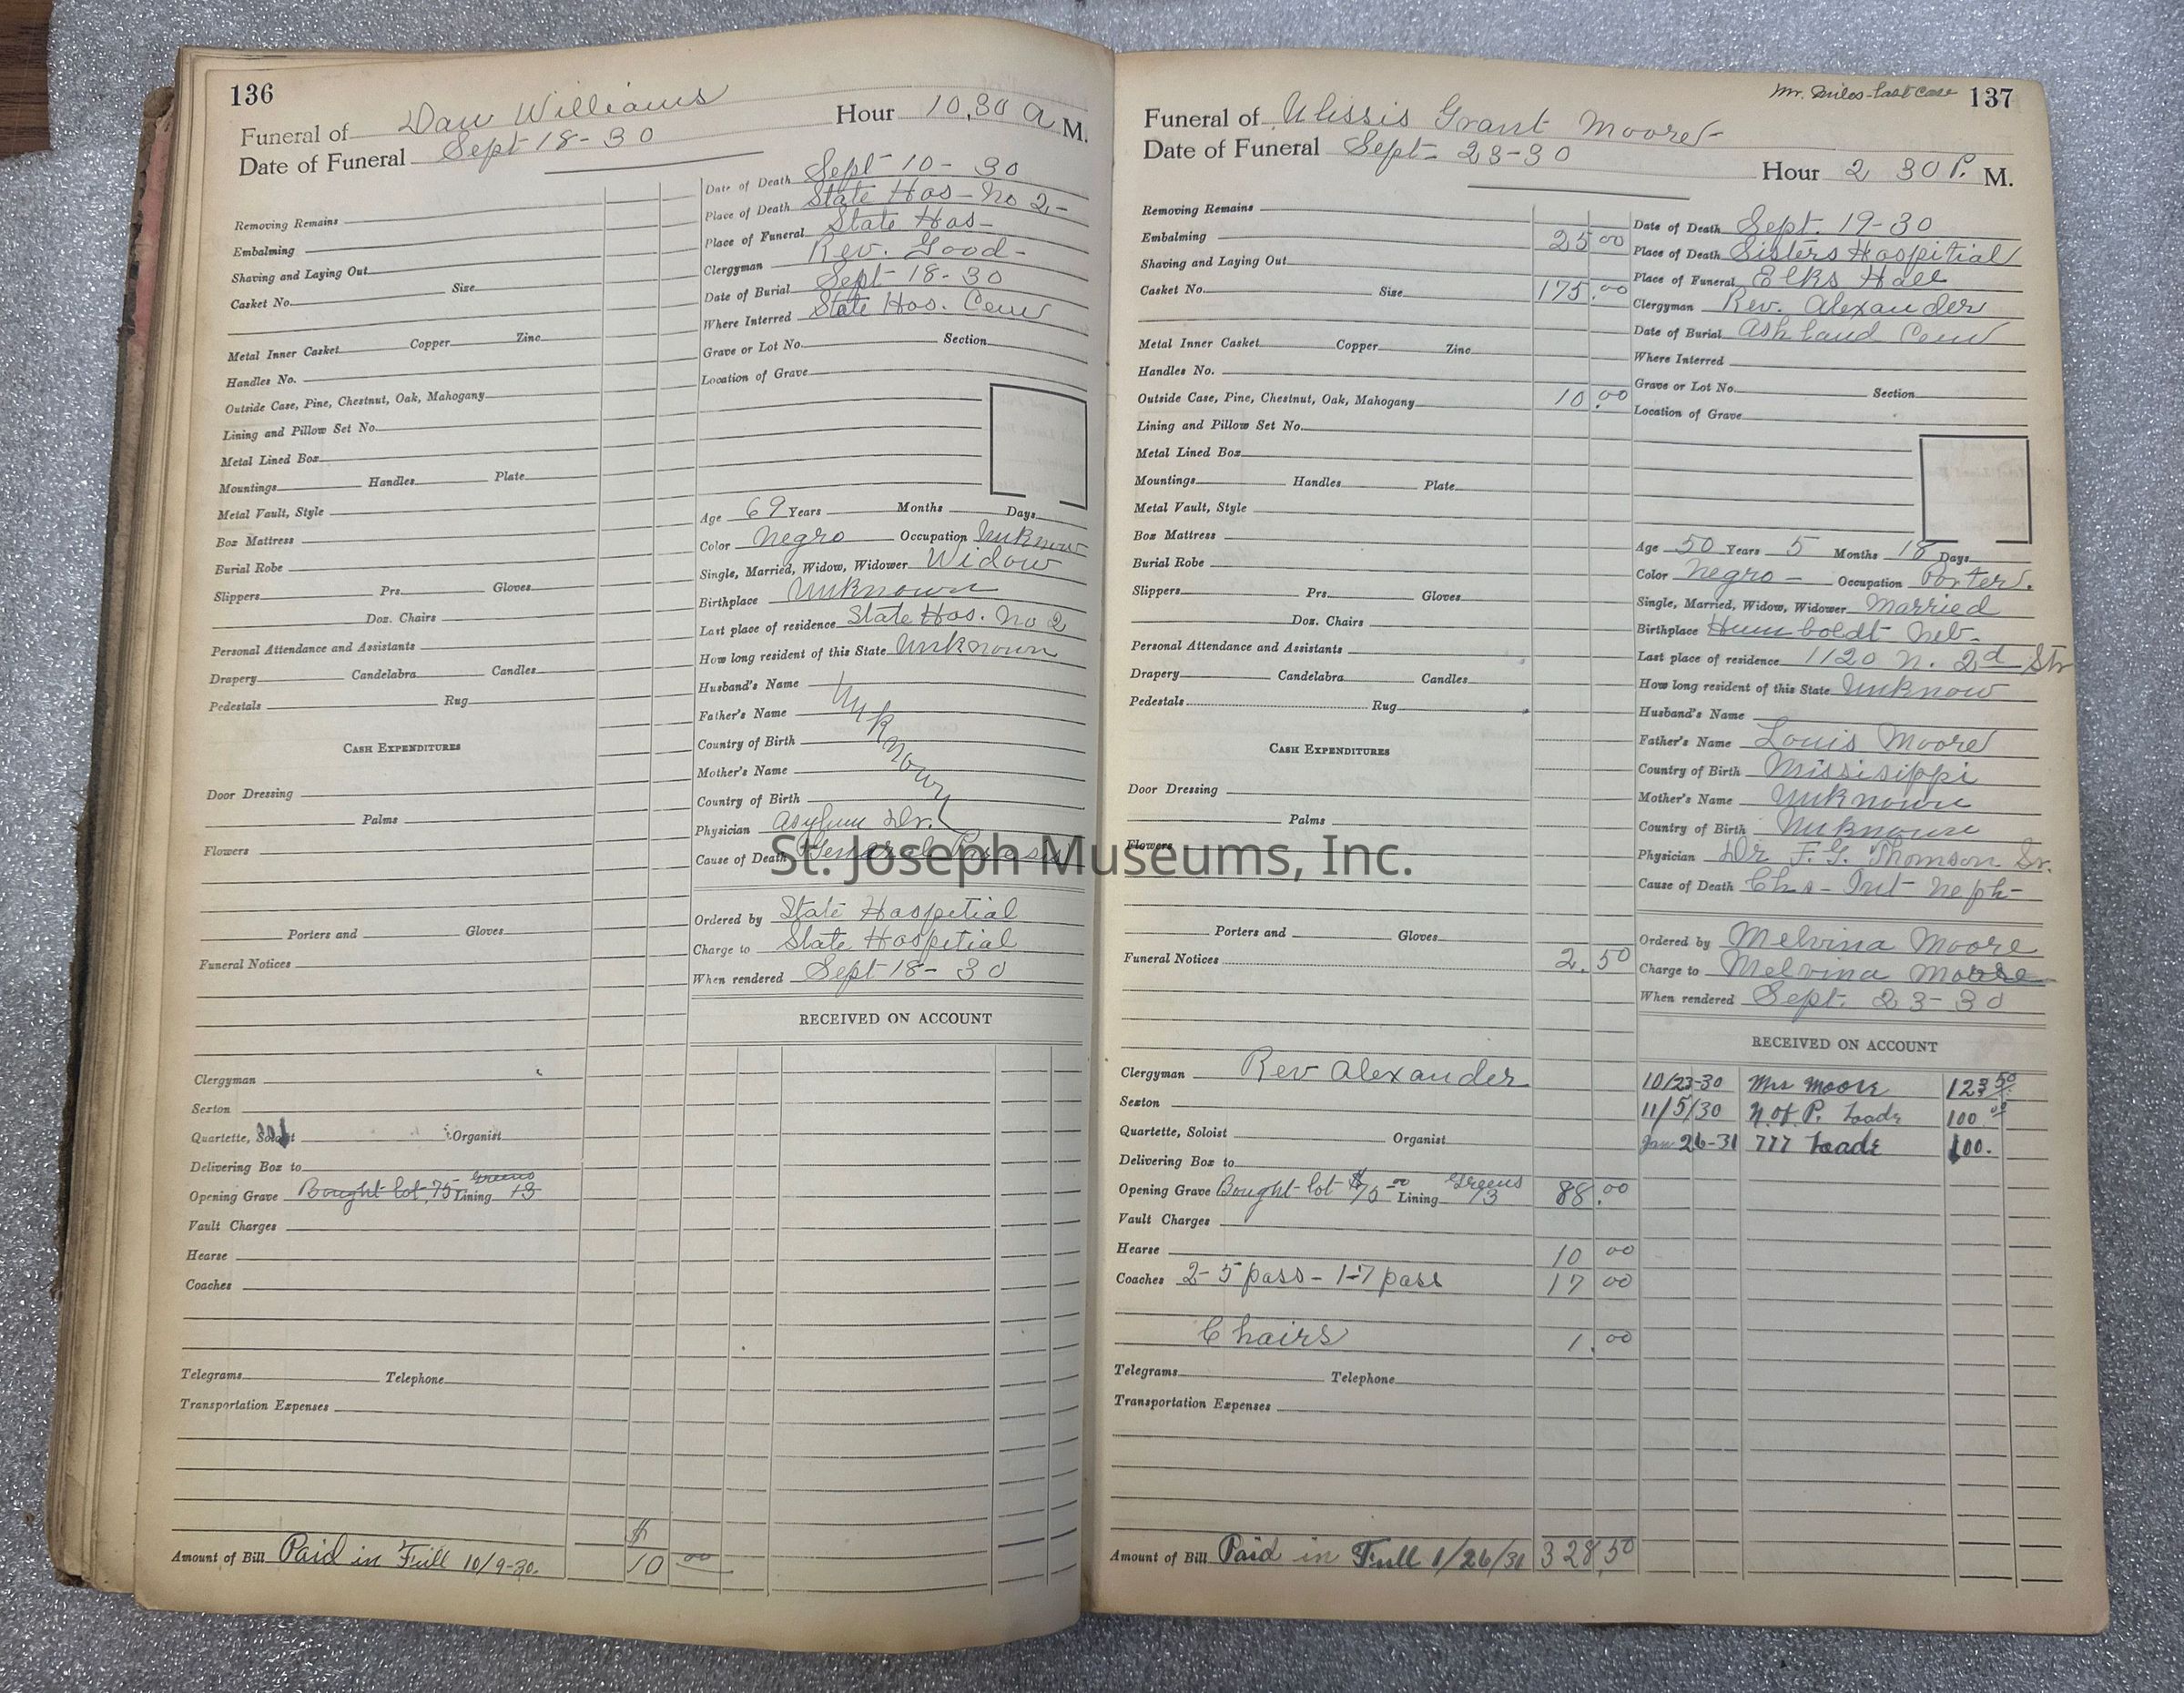 136
Funeral of Dan Williams Hour 10,30 A M.
Date of Funeral Sept 18-30
Removing Remains
Embalming
Shaving and Laying Out
Casket No. Size
Metal Inner Casket Copper Zinc
Handles No.
Outside Case, Pine, Chestnut, Oak, Mahogany
Lining and Pillow Set No.
Metal Lined Box
Mountings Handles Plate
Metal Vault, Style
Box Mattress
Burial Robe
Slippers Prs. Gloves
Doz. Chairs
Personal Attendance and Assistants
Drapery Candelabra Candles
Pedestals Rug
CASH EXPENDITURES
Door Dressing
Palms
Flowers
Porters and Gloves
Funeral Notices
Clergyman
Sexton
Quartette, Soloist Organist
Delivering Box to
Opening Grave Bought lot 75 Lining Greens 13
Vault Charges
Hearse
Coaches
Telegrams Telephone
Transportation Expenses
Amount of Bill Paid in Full 10/9-30. $10 00
Date of Death Sept 10-30
Place of Death State Hos-No 2-
Place of Funeral State Hos-
Clergyman Rev. Good-
Date of Burial Sept-18-30
Where Interred State Hos. Cem
Grave or Lot No. Section
Location of Grave
Age 69 Years Months Days
Color Negro Occupation Unknow
Single, Married, Widow, Widower Widow
Birthplace Unknown
Last place of residence State Hos. No 2
How long resident of this State Unknown
Husband's Name
Father's Name
Country of Birth Unknown
Mother's Name
Country of Birth
Physician Asylum Dr.
Cause of Death General
Ordered by State Hospetial
Charge to State Hospetial
When rendered Sept 18-30
RECEIVED ON ACCOUNT
Mr. last case 137
Funeral of Ulissis Grant Moore
Date of Funeral Sept-23-30
Hour 2 30 P. M.
Removing Remains
Embalming 25 00
Shaving and Laying Out
Casket No. Size 175.00
Metal Inner Casket Copper Zinc
Handles No.
Outside Case, Pine, Chestnut, Oak, Mahogany 10.00
Lining and Pillow Set No.
Metal Lined Box
Mountings Handles Plate
Metal Vault, Style
Box Mattress
Burial Robe
Slippers Prs. Gloves
Doz. Chairs
Personal Attendance and Assistants
Drapery Candelabra Candles
Pedestals Rug
CASH EXPENDITURES
Door Dressing
Palms
Flowers
Porters and Gloves
Funeral Notices 2.50
Clergyman Rev Alexander
Sexton
Quartette, Soloist Organist
Delivering Box to
Opening Grave Bought lot $75 00 Lining Greens 13 88.00
Vault Charges
Hearse 10 00
Coaches 2-5 pass-1-7 pass 17 00
Chairs 1.00
Telegrams Telephone
Transportation Expenses
Amount of Bill Paid in Full 1/26/31 328.50
Date of Death Sept. 19-30
Place of Death Sisters Hospitial
Place of Funeral Elks Hall
Clergyman Rev. Alexander
Date of Burial Ashland Cem
Where Interred
Grave or Lot No. Section
Location of Grave
Age 50 Years 5 Months 18 Days
Color Negro- Occupation Porter.
Single, Married, Widow, Widower Married
Birthplace Humboldt Neb-
Last place of residence 1120 N. 2d Str
How long resident of this State Unknow
Husband's Name
Father's Name Louis Moore
Country of Birth Mississippi
Mother's Name Unknown
Country of Birth Unknown
Physician Dr F.G. Thomson Sr.
Cause of Death Chs-Int-Neph-
Ordered by Melvina Moore
Charge to Melvina Moore
When rendered Sept. 23-30
RECEIVED ON ACCOUNT
10/23-30 Mrs Moore 123 50
11/5/30 K. of P. Lodge 100 00
Jan-26-31 777 Lodge 100.
St. Joseph Museums, Inc.